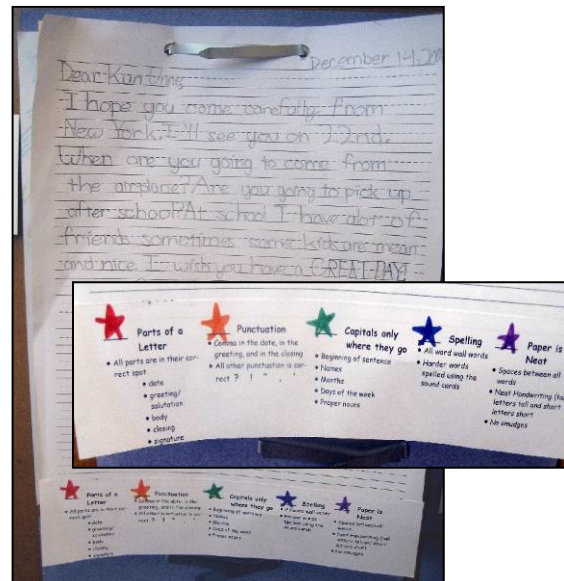 December 14, 20
Dear Kun Unne,
I hope you come carefully from
New York. I'll see you on 22nd.
When are you going to come from
the airplane? Are you going to pick up
after school? At school I have alot of
friends sometimes some kids are mean
and nice. I wish you have a GREAT DAY!
Parts of a
Letter
• All parts are in their cor-
rect spot
• date
• greeting/
salutation
• body
• closing
• signature
Punctuation
• Comma in the date, in the
greeting, and in the closing
• All other punctuation is cor-
rect ? ! " , .
Capitals only
where they go
• Beginning of sentence
• Names
• Months
• Days of the week
• Proper nouns
Spelling
• All word wall words
• Harder words
spelled using the
sound cards
Paper is
Neat
• Spaces between all
words
• Neat Handwriting (tall
letters tall and short
letters short
• No smudges
Parts of a
Letter
• All parts are in their cor-
rect spot
• date
• greeting/
salutation
• body
• closing
• signature
Punctuation
• Comma in the date, in the
greeting, and in the closing
• All other punctuation is cor-
rect ? !
Capitals only
where they go
• Beginning of sentence
• Names
• Months
• Days of the week
• Proper nouns
Spelling
• All word wall words
• Harder words
spelled using the
sound cards
Paper is
Neat
• Spaces between all
words
• Neat Handwriting (tall
letters tall and short
letters short
• No smudges